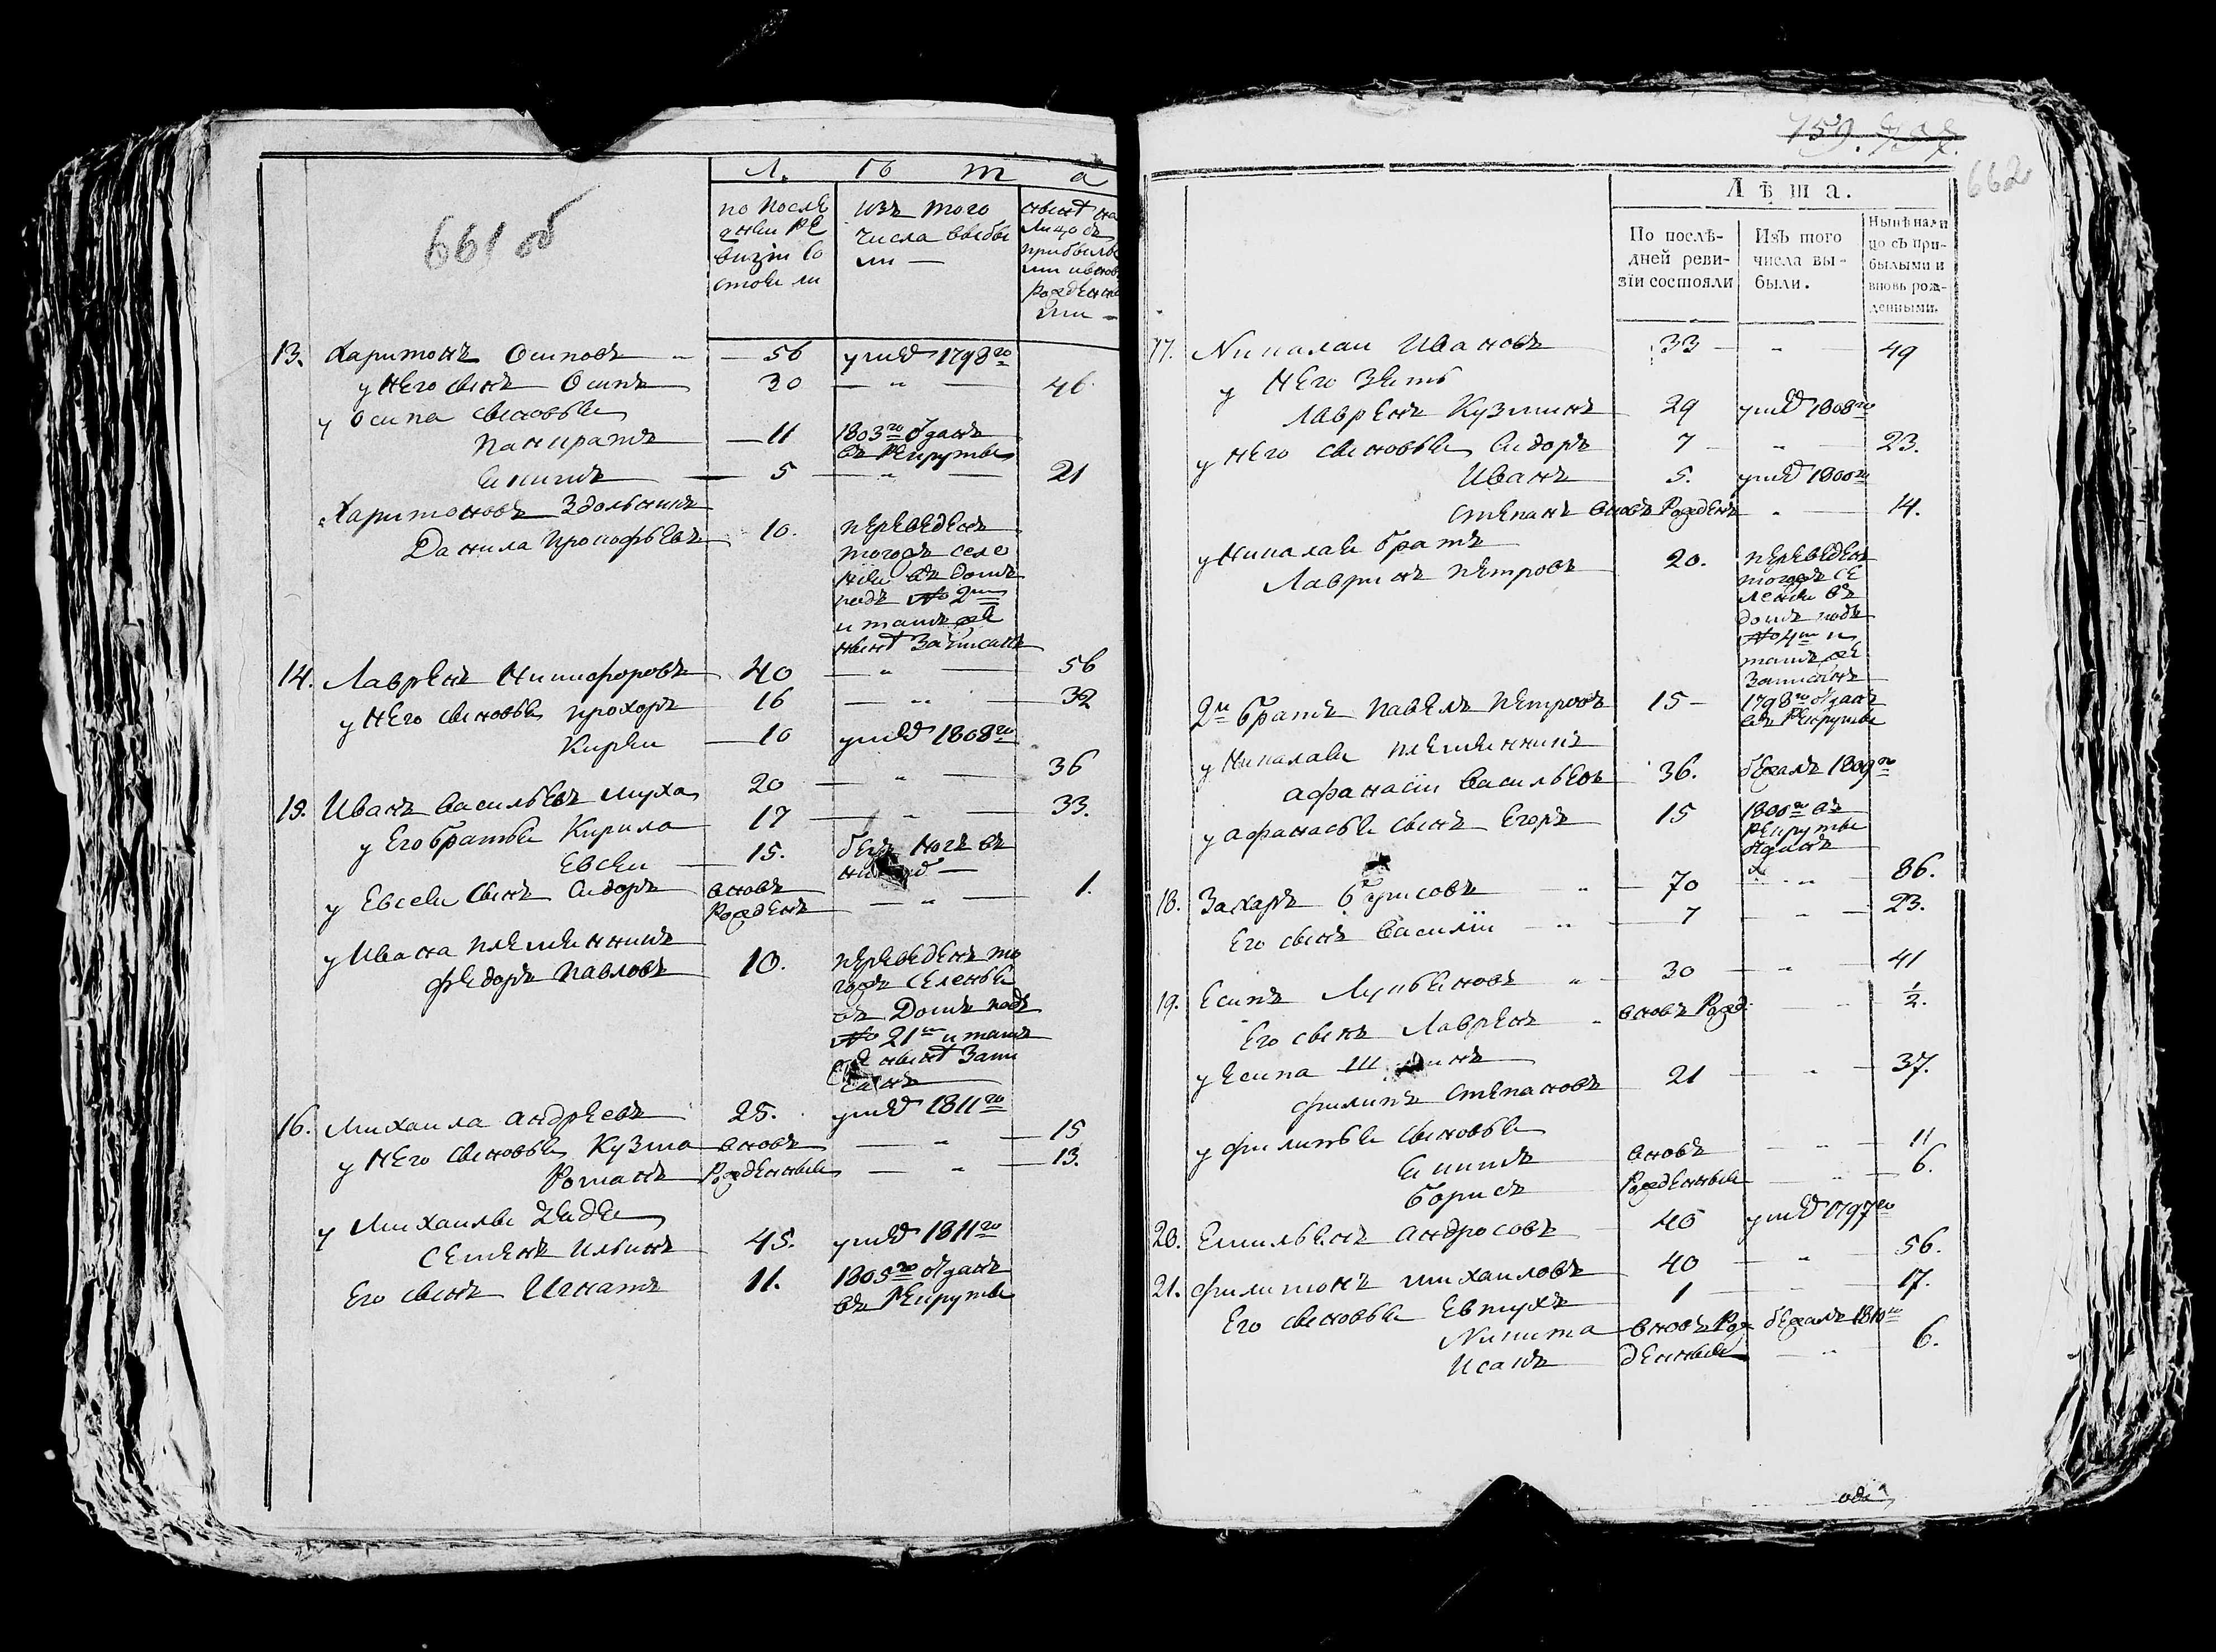 661 об
Л ѣ т а
по после
дней ре
визiи со
стояли
изъ того
числа выбы
ли —
нынѣ на
лицо съ
прибылы
ми и вновь
рожденны
ми —
13. Харитонъ Осиповъ — 56 умѣ 1798го
у него сынъ Осипъ 30 — „ — 46.
у Осипа сыновья
Панкратъ — 11 1803го отданъ
въ рекруты
Якимъ — 5 — „ — 21
Харитоновъ
Данила Прокофьевъ 10. переведенъ
тогожъ селе
нія въ домъ
подъ № 2мъ
и тамъ же
нынѣ записанъ
14. Лавренъ Никифоровъ 40 — „ — 56
у него сыновья Прохоръ 16 — „ — 32
Кирей — 10 умѣ 1808го
15. Иванъ Васильевъ Муха 20 — „ — 36
у Его братья Кирила 17 — „ — 33.
Евсей — 15. безъ
у Евсея сынъ Сидоръ вновь
рожденъ — „ — 1.
у Ивана племянникъ
Федоръ Павловъ 10. переведенъ то
гожъ селенья
въ домъ подъ
№ 21мъ и тамъ
же нынѣ запи
санъ
16. Михаила Андреевъ 25. умѣ 1811го
у него сыновья Кузма вновь — „ — 15
Романъ рожденныя — „ — 13.
у Михайлы дядя
Семенъ Ильинъ 45. умѣ 1811го
Его сынъ Игнатъ 11. 1805го отданъ
въ рекруты
759.
662
Лѣта.
По послѣ-
дней реви-
зіи состояли
Изъ того
числа вы-
были.
Нынѣ нали
цо съ при-
былыми и
вновь рож-
денными.
17. Никалай Ивановъ 33 — „ — 49
у него зять
Лавренъ Кузминъ 29 умѣ 1808го
у него сыновья Сидоръ 7 — „ — 23.
Иванъ 5. умѣ 1800го
Степанъ вновь рожденъ „ — 14.
у Никалая братъ
Лавринъ Петровъ 20. переведенъ
тогожъ се
ленія въ
домъ подъ
№ 4мъ и
тамъ же
записанъ
2й братъ Павелъ Петровъ 15 — 1798го отданъ
въ рекруты
у Никалая племянникъ
Афанасій Васильевъ 36. бежалъ 1809го
у Афанасья сынъ Егоръ 15 1800го въ
рекруты
отданъ
18. Захаръ Борисовъ „ — 70 — „ — 86.
Его сынъ Василій — „ — 7 — „ — 23.
19. Есипъ Лукьяновъ „ — 30 — „ — 41
Его сынъ Лавренъ „ вновь рожд. — „ — ½.
у Есипа
Филипъ Степановъ 21 — „ — 37.
у Филипья сыновья
Якимъ вновь — „ — 11
Борисъ рожденныя — „ — 6.
20. Емильянъ Андросовъ 40 умѣ 1797го
21. Филимонъ Михаиловъ 40 — „ — 56.
Его сыновья Евтухъ 1 — „ — 17.
Никита вновь рож бежалъ 1810го
Исакъ денныя — „ — 6.